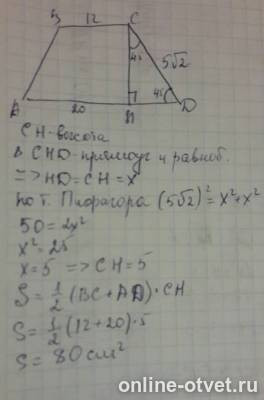 В 12 С
4s 5√2
А 20 Н 45 D
CH-высота
Δ CHD-прямоуг и равноб.
=> HD=CH=x
по т. Пифагора (5√2)²=x²+x²
50=2x²
x²=25
x=5 => CH=5
S=1/2(BC+AD)·CH
S=1/2(12+20)·5
S=80см²
online-otvet.ru